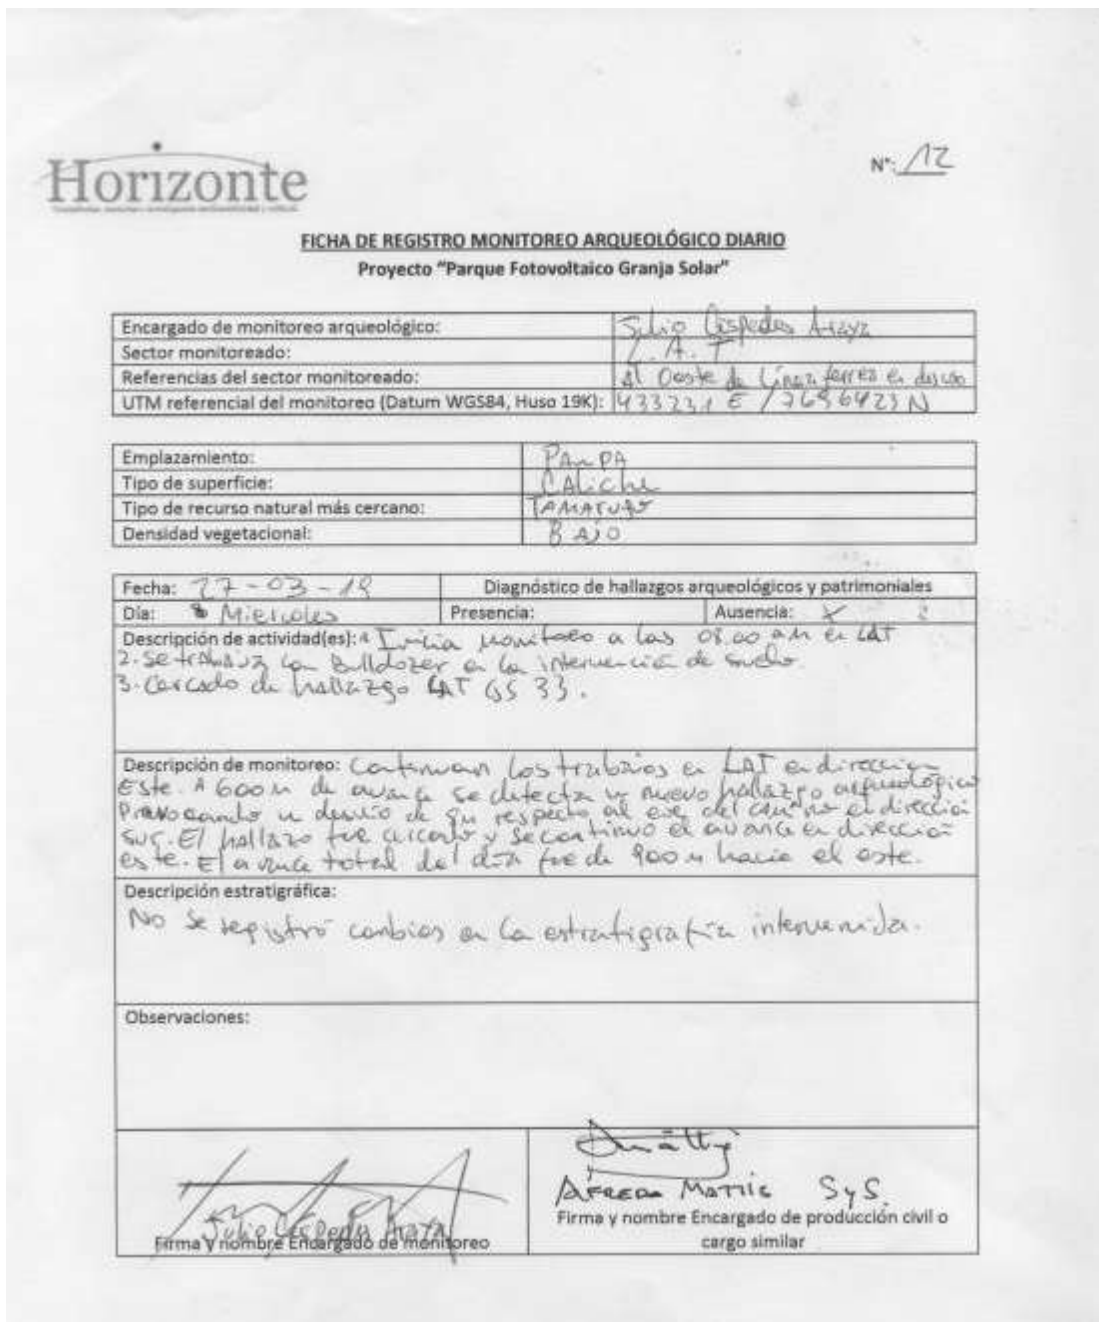 Horizonte
N°: 12
FICHA DE REGISTRO MONITOREO ARQUEOLÓGICO DIARIO
Proyecto "Parque Fotovoltaico Granja Solar"
Encargado de monitoreo arqueológico: Julio Céspedes Araya
Sector monitoreado: L.A.T
Referencias del sector monitoreado: Al Oeste de Línea ferrea en desuso
UTM referencial del monitoreo (Datum WGS84, Huso 19K): 433231 E / 7696423 N
Emplazamiento: PAMPA
Tipo de superficie: CALiche
Tipo de recurso natural más cercano: TAMARUGO
Densidad vegetacional: BAJO
Fecha: 27-03-19 Diagnóstico de hallazgos arqueológicos y patrimoniales
Día: Miercoles Presencia: Ausencia: X
Descripción de actividad(es): 1 Inicia monitoreo a las 08:00 am en LAT
2. Se trabaja con Bulldozer en la intervención de suelo.
3. Cercado de hallazgo LAT GS 33.
Descripción de monitoreo: Continuan los trabajos en LAT en direccion
Este. A 600 m de avance se detecta un nuevo hallazgo arqueológico
Provocando un desvío de respecto al eje del camino en direccion
sur. El hallazo fue cercado y se continuo el avance en direccion
este. El avance total del día fue de 900 m hacia el este.
Descripción estratigráfica:
No se registró cambios en la estratigrafía intervenida.
Observaciones:
Julio Céspedes Araya
Firma y nombre Encargado de monitoreo
SyS.
Firma y nombre Encargado de producción civil o
cargo similar